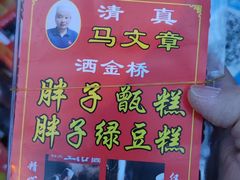 清真
马文章
洒金桥
胖子甑糕
胖子绿豆糕